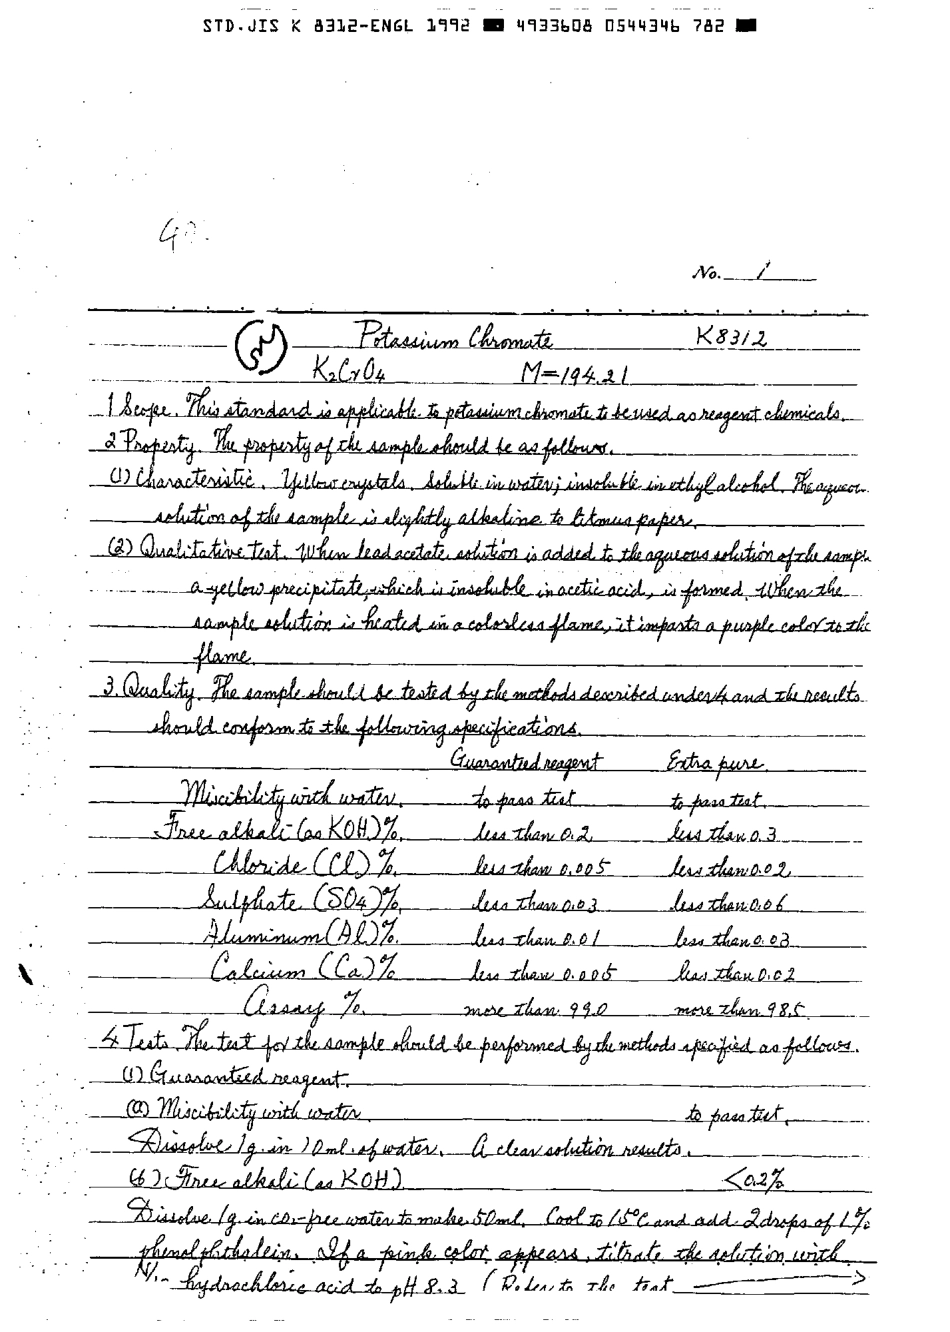 STD.JIS K 8312-ENGL 1992 ■ 4933608 0544346 782 ■
No. 1
Potassium Chromate K8312
K2CrO4 M=194.21
1 Scope. This standard is applicable to potassium chromate to be used as reagent chemicals.
2 Property. The property of the sample should be as follows.
(1) Characteristic. Yellow crystals. Soluble in water; insoluble in ethyl alcohol. The aqueou
solution of the sample is slightly alkaline to litmus paper.
(2) Qualitative Test. When lead acetate solution is added to the aqueous solution of the sample
a yellow precipitate, which is insoluble in acetic acid, is formed. When the
sample solution is heated in a colorless flame, it imparts a purple color to the
flame.
3. Quality. The sample should be tested by the methods described under 4 and the results
should conform to the following specifications.
Guaranteed reagent Extra pure.
Miscibility with water. to pass test to pass test.
Free alkali (as KOH) %. less than 0.2 less than 0.3
Chloride (Cl) %. less than 0.005 less than 0.02
Sulphate (SO4) %. less than 0.03 less than 0.06
Aluminum (Al) %. less than 0.01 less than 0.03
Calcium (Ca) % less than 0.005 less than 0.02
Assay %. more than 99.0 more than 98.5
4. Tests. The test for the sample should be performed by the methods specified as follows.
(1) Guaranteed reagent.
(a) Miscibility with water to pass test.
Dissolve 1g. in 10ml. of water. A clear solution results.
(b) Free alkali (as KOH) <0.2%
Dissolve 1g. in CO2-free water to make 50ml. Cool to 15°C and add 2 drops of 1%
phenolphthalein. If a pink color appears, titrate the solution with
hydrochloric acid to pH 8.3 (Refer to the test